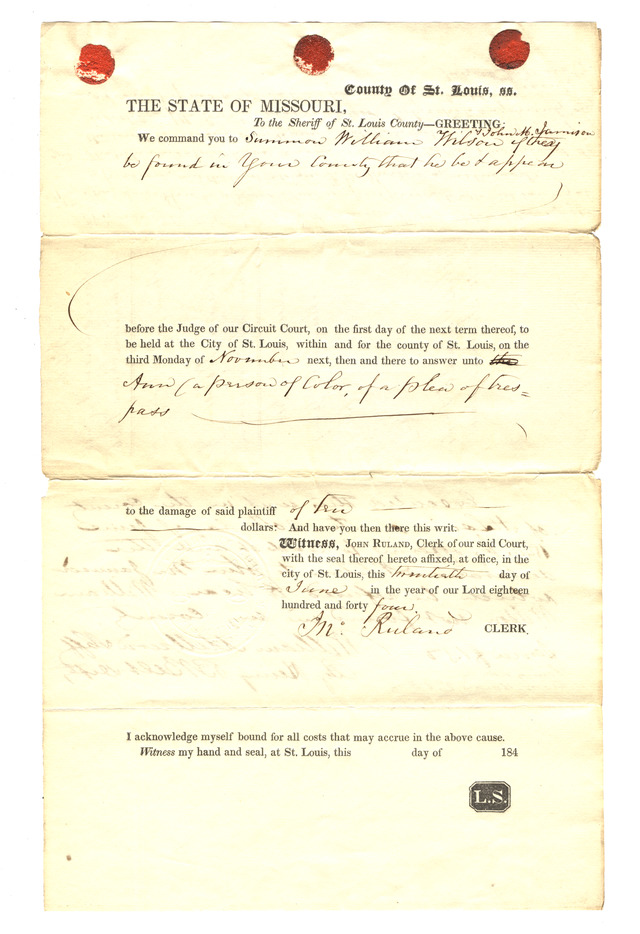 County Of St. Louis, ss.
THE STATE OF MISSOURI,
To the Sheriff of St. Louis County—GREETING:
& John M. Jamison
We command you to Summon William Wilson if they
be found in Your County, that he be & appear
before the Judge of our Circuit Court, on the first day of the next term thereof, to
be held at the City of St. Louis, within and for the county of St. Louis, on the
third Monday of November next, then and there to answer unto the
Ann (a person of Color, of a plea of tres=
pass
to the damage of said plaintiff of Ten
dollars: And have you then there this writ.
Witness, JOHN RULAND, Clerk of our said Court,
with the seal thereof hereto affixed, at office, in the
city of St. Louis, this twentieth day of
June in the year of our Lord eighteen
hundred and forty four.
Jno. Ruland CLERK.
I acknowledge myself bound for all costs that may accrue in the above cause.
Witness my hand and seal, at St. Louis, this day of 184
L.S.